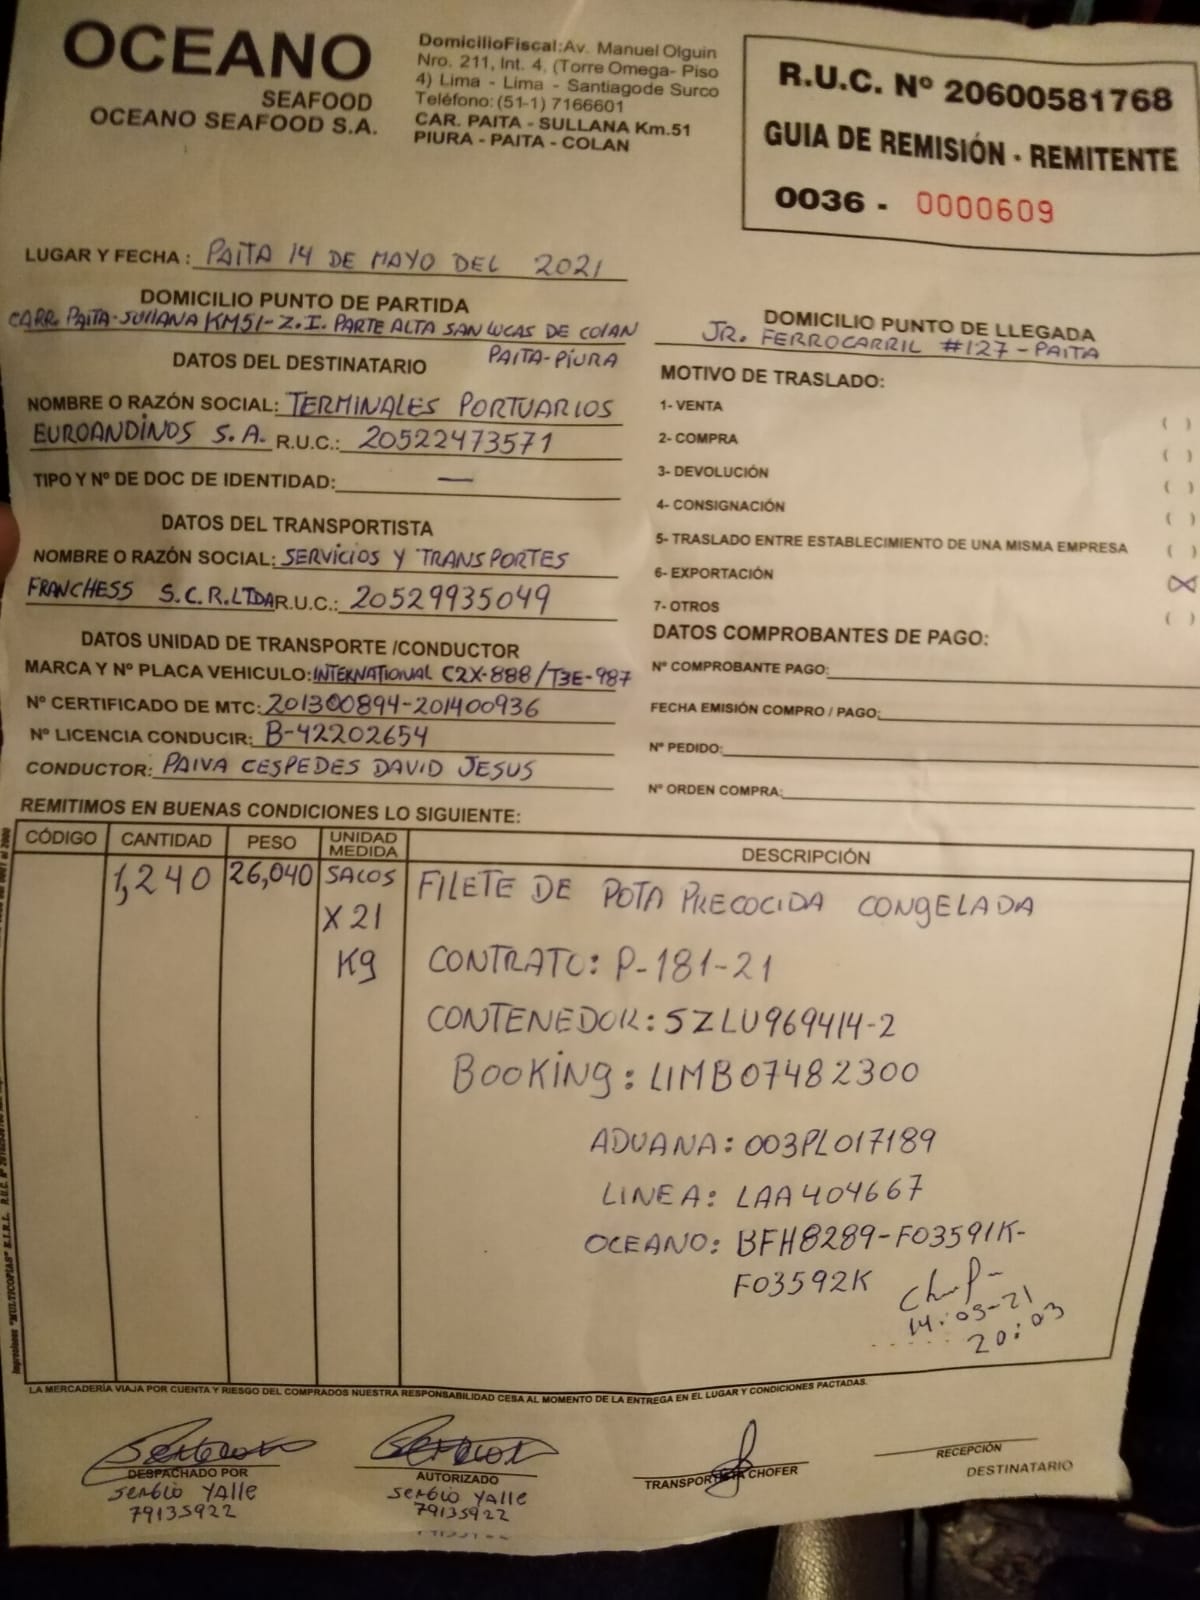 OCEANO
SEAFOOD
OCEANO SEAFOOD S.A.
DomicilioFiscal: Av. Manuel Olguin
Nro. 211, Int. 4, (Torre Omega- Piso
4) Lima - Lima - Santiagode Surco
Teléfono: (51-1) 7166601
CAR. PAITA - SULLANA Km.51
PIURA - PAITA - COLAN
R.U.C. Nº 20600581768
GUIA DE REMISIÓN - REMITENTE
0036 - 0000609
LUGAR Y FECHA : PAITA 14 DE MAYO DEL 2021
DOMICILIO PUNTO DE PARTIDA
CARR. PAITA-SULLANA KM51-Z.I. PARTE ALTA SAN LUCAS DE COLAN
PAITA-PIURA
DOMICILIO PUNTO DE LLEGADA
JR. FERROCARRIL #127-PAITA
DATOS DEL DESTINATARIO
NOMBRE O RAZÓN SOCIAL: TERMINALES PORTUARIOS
EUROANDINOS S.A. R.U.C.: 20522473571
TIPO Y Nº DE DOC DE IDENTIDAD: —
MOTIVO DE TRASLADO:
1- VENTA ( )
2- COMPRA ( )
3- DEVOLUCIÓN ( )
4- CONSIGNACIÓN ( )
5- TRASLADO ENTRE ESTABLECIMIENTO DE UNA MISMA EMPRESA ( )
6- EXPORTACIÓN (X)
7- OTROS ( )
DATOS DEL TRANSPORTISTA
NOMBRE O RAZÓN SOCIAL: SERVICIOS Y TRANSPORTES
FRANCHESS S.C.R.LTDA R.U.C.: 20529935049
DATOS UNIDAD DE TRANSPORTE /CONDUCTOR
MARCA Y Nº PLACA VEHICULO: INTERNATIONAL C2X-888/T3E-987
Nº CERTIFICADO DE MTC: 201300894-201400936
Nº LICENCIA CONDUCIR: B-42202654
CONDUCTOR: PAIVA CESPEDES DAVID JESUS
DATOS COMPROBANTES DE PAGO:
Nº COMPROBANTE PAGO:
FECHA EMISIÓN COMPRO / PAGO:
Nº PEDIDO:
Nº ORDEN COMPRA:
REMITIMOS EN BUENAS CONDICIONES LO SIGUIENTE:
CÓDIGO CANTIDAD PESO UNIDAD MEDIDA DESCRIPCIÓN
1,240 26,040 SACOS FILETE DE POTA PRECOCIDA CONGELADA
X 21
Kg CONTRATO: P-181-21
CONTENEDOR: SZLU969414-2
BOOKING: LIMB07482300
ADUANA: 003PL017189
LINEA: LAA404667
OCEANO: BFH8289-F03591K-
F03592K
14.05-21
20:03
LA MERCADERÍA VIAJA POR CUENTA Y RIESGO DEL COMPRADOS NUESTRA RESPONSABILIDAD CESA AL MOMENTO DE LA ENTREGA EN EL LUGAR Y CONDICIONES PACTADAS.
DESPACHADO POR
SERGIO YALLE
79135922
AUTORIZADO
SERGIO YALLE
79135922
TRANSPORTISTA CHOFER
RECEPCIÓN
DESTINATARIO